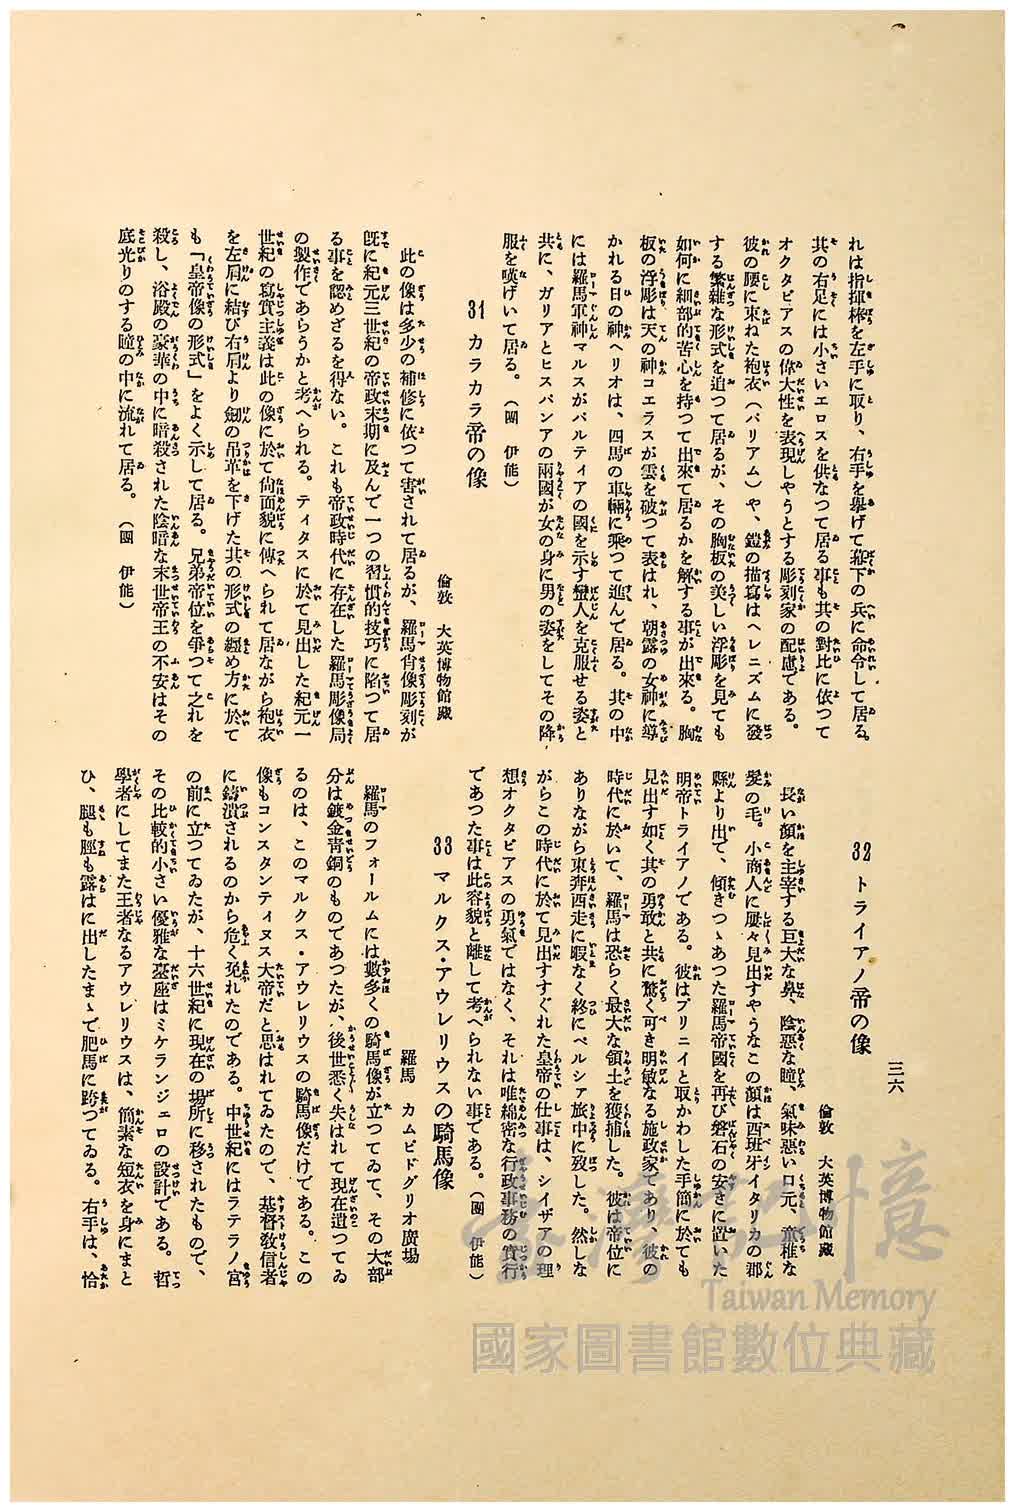 れは指揮棒を左手に取り、右手を擧げて幕下の兵に命令して居る。
其の右足には小さいエロスを供なつて居る事も其の對比に依つて
オクタビアスの偉大性を表現しやうとする彫刻家の配慮である。
彼の腰に束ねた袍衣(パリアム)や、鎧の描寫はヘレニズムに發
する繁雜な形式を追つて居るが、その胸板の美しい浮彫を見ても
如何に細部的苦心を持つて出來て居るかを解する事が出來る。胸
板の浮彫は天の神コエラスが雲を破つて表はれ、朝露の女神に導
かれる日の神ヘリオは、四馬の車輛に乘つて進んで居る。其の中
には羅馬軍神マルスがパルティアの國を示す蠻人を克服せる姿と
共に、ガリアとヒスパンアの兩國が女の身に男の姿をしてその降
服を嘆げいて居る。(團 伊能)
31 カラカラ帝の像
倫敦 大英博物館藏
此の像は多少の補修に依つて害されて居るが、羅馬肖像彫刻が
旣に紀元三世紀の帝政末期に及んで一つの習慣的技巧に陷つて居
る事を認めざるを得ない。これも帝政時代に存在した羅馬彫像局
の製作であらうかと考へられる。ティタスに於て見出した紀元一
世紀の寫實主義は此の像に於て尙面貌に傳へられて居ながら袍衣
を左肩に結び右肩より劍の吊革を下げた其の形式の纒め方に於て
も「皇帝像の形式」をよく示して居る。兄弟帝位を爭つて之れを
殺し、浴殿の豪華の中に暗殺された陰暗な末世帝王の不安はその
底光りのする瞳の中に流れて居る。(團 伊能)
32 トライアノ帝の像
倫敦 大英博物館藏
長い顏を主宰する巨大な鼻、陰惡な瞳、氣味惡い口元、童稚な
髮の毛。小商人に屢々見出すやうなこの顏は西班牙イタリカの郡
縣より出て、傾きつゝあつた羅馬帝國を再び磐石の安きに置いた
明帝トライアノである。彼はプリニイと取かわした手簡に於ても
見出す如く其の勇敢と共に驚く可き明敏なる施政家であり、彼の
時代に於いて、羅馬は恐らく最大な領土を獲捕した。彼は帝位に
ありながら東奔西走に暇なく終にペルシア旅中に歿した。然しな
がらこの時代に於て見出すすぐれた皇帝の仕事は、シイザアの理
想オクタビアスの勇氣ではなく、それは唯綿密な行政事務の實行
であつた事は此容貌と離して考へられない事である。(團 伊能)
33 マルクス・アウレリウスの騎馬像
羅馬 カムピドグリオ廣場
羅馬のフォールムには數多くの騎馬像が立つてゐて、その大部
分は鍍金靑銅のものであつたが、後世悉く失はれて現在遺つてゐ
るのは、このマルクス・アウレリウスの騎馬像だけである。この
像もコンスタンティヌス大帝だと思はれてゐたので、基督敎信者
に鑄潰されるのから危く免れたのである。中世紀にはラテラノ宮
の前に立つてゐたが、十六世紀に現在の場所に移されたもので、
その比較的小さい優雅な臺座はミケランジェロの設計である。哲
學者にしてまた王者なるアウレリウスは、簡素な短衣を身にまと
ひ、腿も脛も露はに出したまゝで肥馬に跨つてゐる。右手は、恰
三六
臺灣記憶
Taiwan Memory
國家圖書館數位典藏